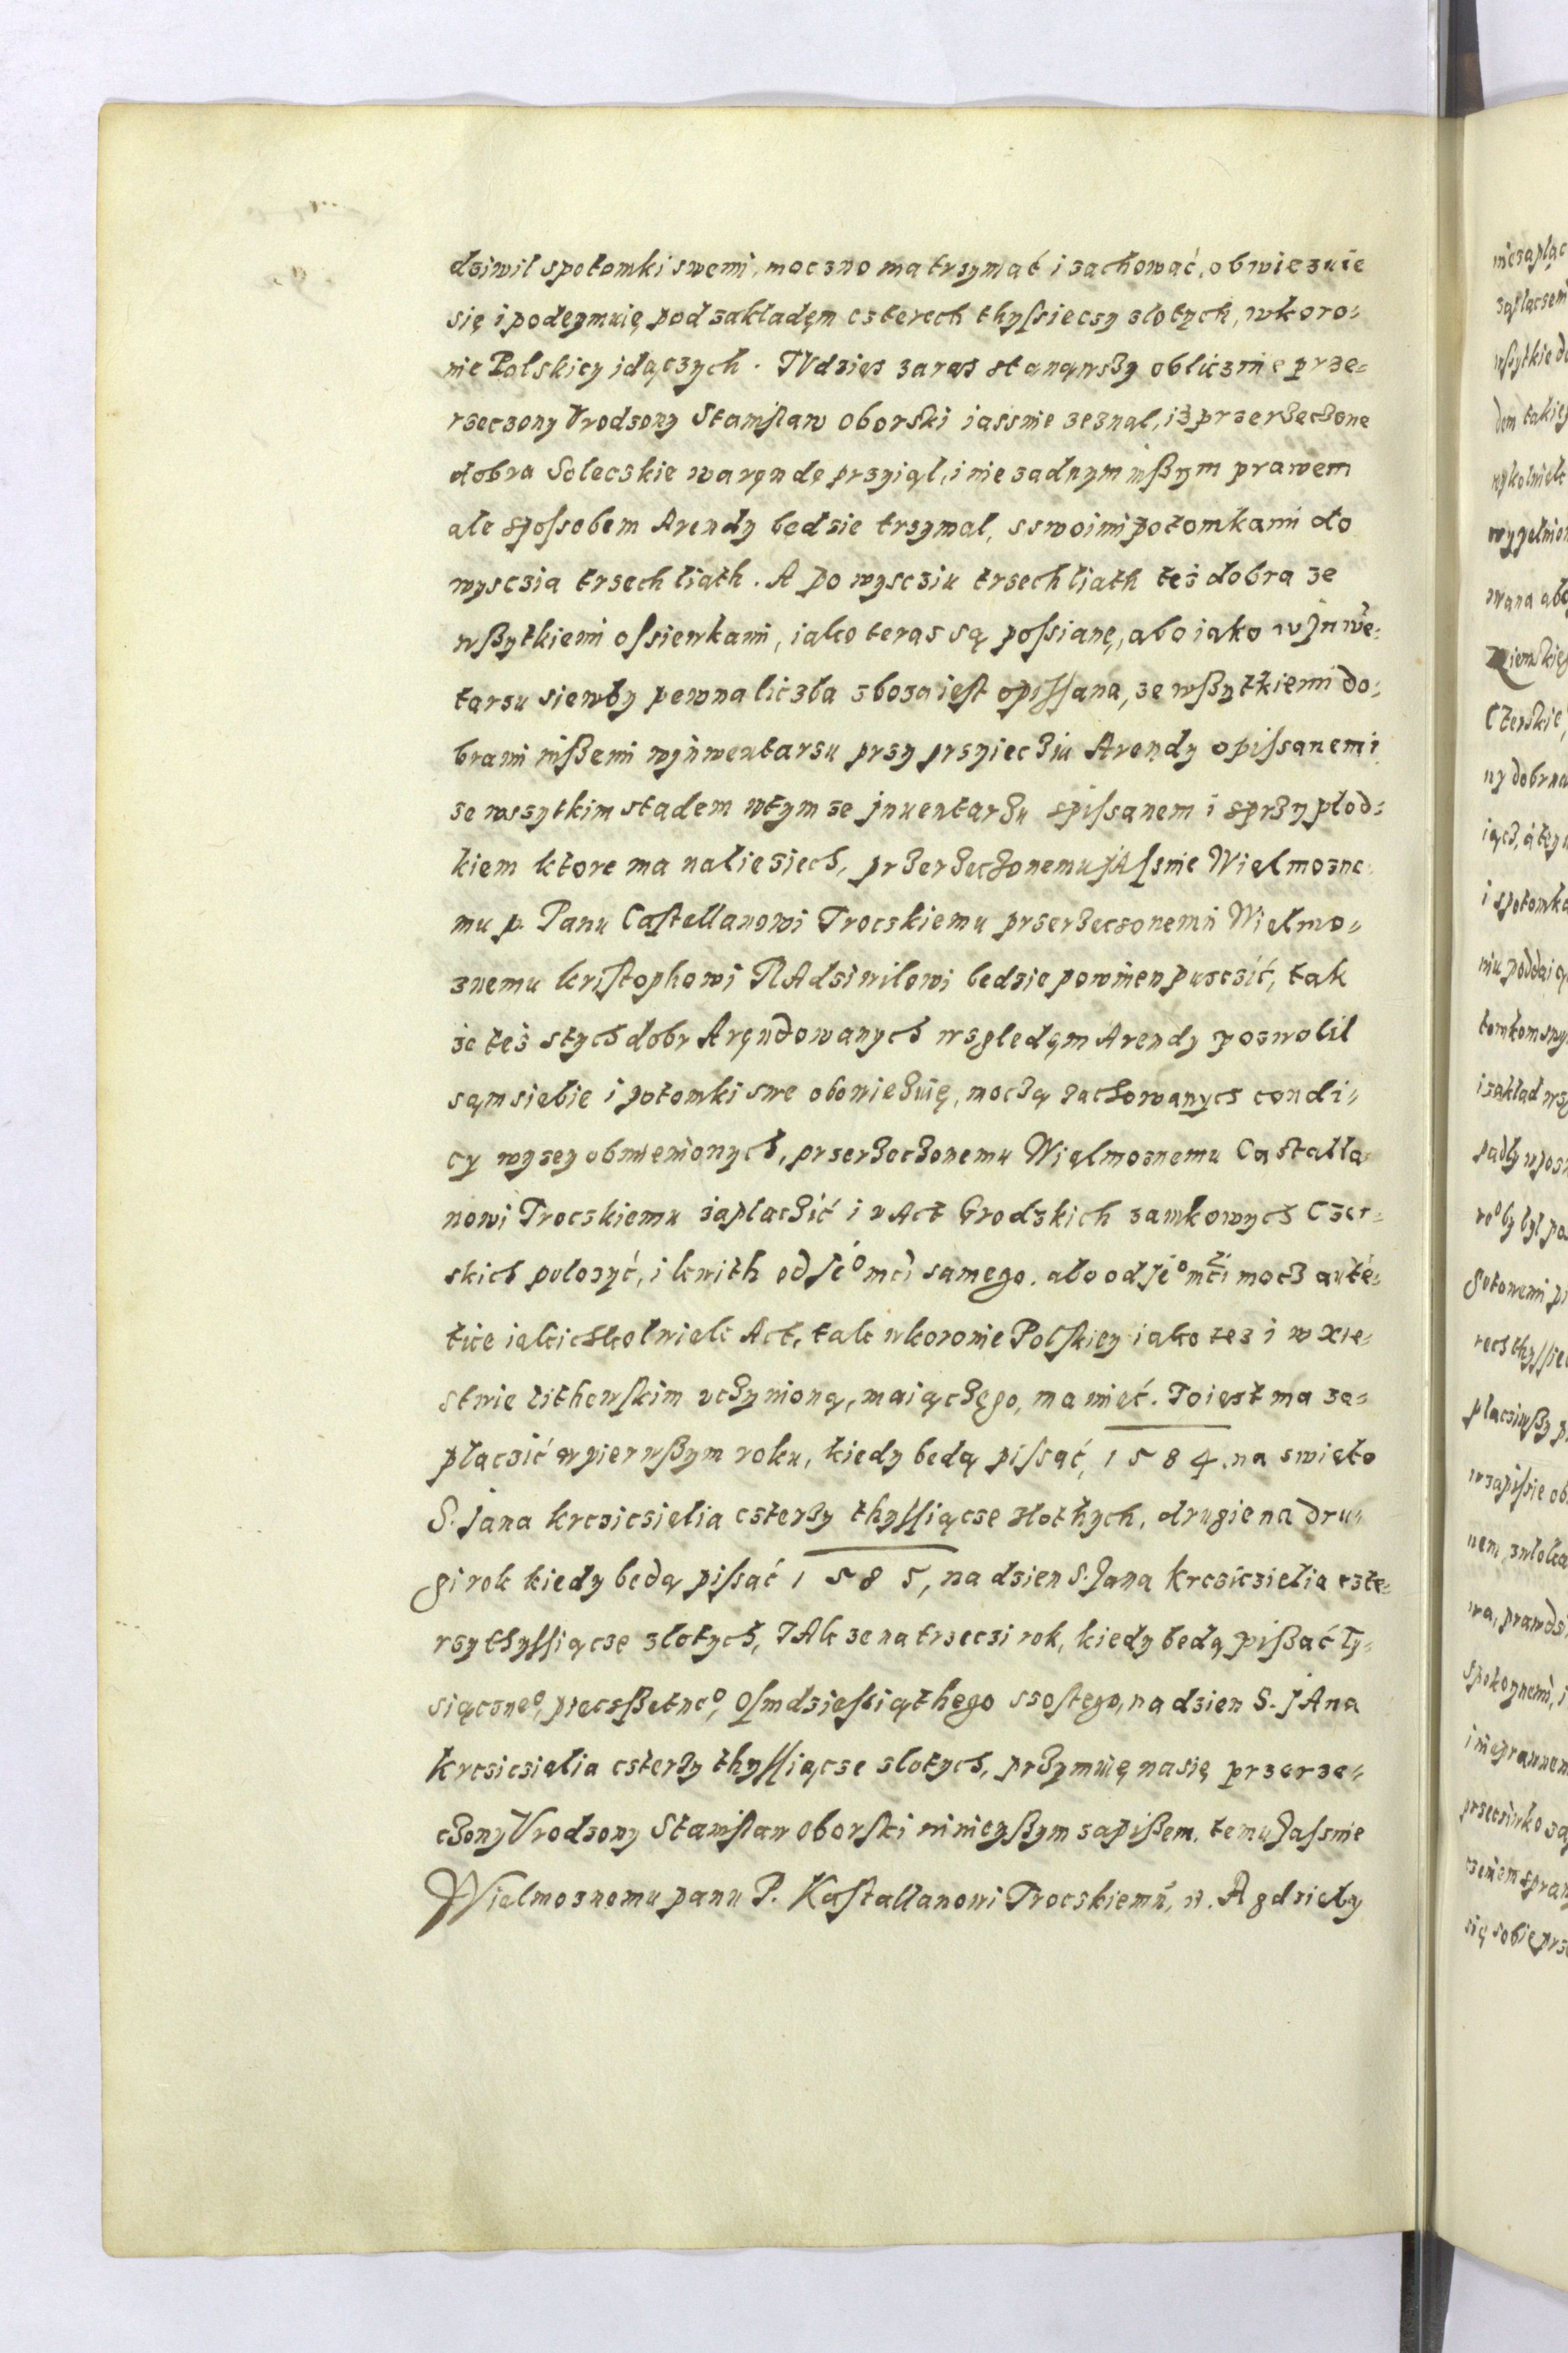 dziwil spotomki swemi, moczno ma trzymać i zachować, obwiezuie
się i podeymuię pod zakładęm czterech thyſsieczy zlotych, wkoro=
nie Polskiey idączych. TVdzies zaraz stanąwszy oblicznie prze=
rzeczony Vrodzony Staniſlaw Oborſki iassnie zeznal, iż przerzeczone
dobra Soleczkie waręndę przyiąl, i nie żadnym inßym prawem
ale spoſsobem Arendy będzie trzymal, sswoimi potomkami do
wysczia trzech liath. A po wyscziu trzech liath też dobra ze
wßytkiemi oſsiewkami, iako teraz są poſsianę, abo iako wJnwē=
tarzu siewby pewna liczba zboza ieſt opiſsana, ze wßytkiemi do=
brami inßemi wynwentarzu przy przyiecziu Arendy opiſsanemi
ze wssytkim stadem wtym ze jnuentarzu spiſsanem i sprzypłod=
kiem ktore ma nalieziech, przerzeczonemu jAſsnie Wielmozne
mu p. Panu Caſtellanowi Trockiemu przerzeczonemu Wielmo=
znemu kriſtophowi RAdziwilowi bedzie powinien puszić, tak
że też ztych dobr Aręndowanych wzgledęm Arendy pozwolil
sąm siebie i potomki swe obowiezuię, moczą zachowanych condi=
cy wyzey obmienionych, przerzeczonemu Wielmoznemu Castalla
nowi Troczkiemu zaplaczić i v Act Grodzkich zamkowych Czer=
skich polozyć, i kwith od Jeº mci samego, abo od Jeº mći mocz autē=
tice iakichkolwiek Act, tak wkoronie Polſkiey iako tez i w xie=
stwie Lithewſkim vczynioną, maiączęgo, ma mieć. To iest ma za=
placzić w pierwßym roku, kiedy bedą piſsąć, 1584. na swięto
S. Jana krczicsielia czterzy thyſsiącze zlothych, drugie na dru=
gi rok kiedy bedą piſsać 1585, na dzien S. Jana krczicsielia czte=
rzy thyſsiącze zlotych, TAk ze na trzeczi rok, kiedy bedą pißać ty=
siączneº, pieczßetneº, Oſmdzieſsiąthego szoſtego, na dzien S. jAna
krczicsielia czterzy thyſsiącze zlotych, przymuię na się przerze=
czony Vrodzony Staniſlaw Oborſki ninieyßym zapißem, temu Jaſsnie
Wielmoznemu panu P. Kaſtallanowi Troczkiemu, n. A gdzieby